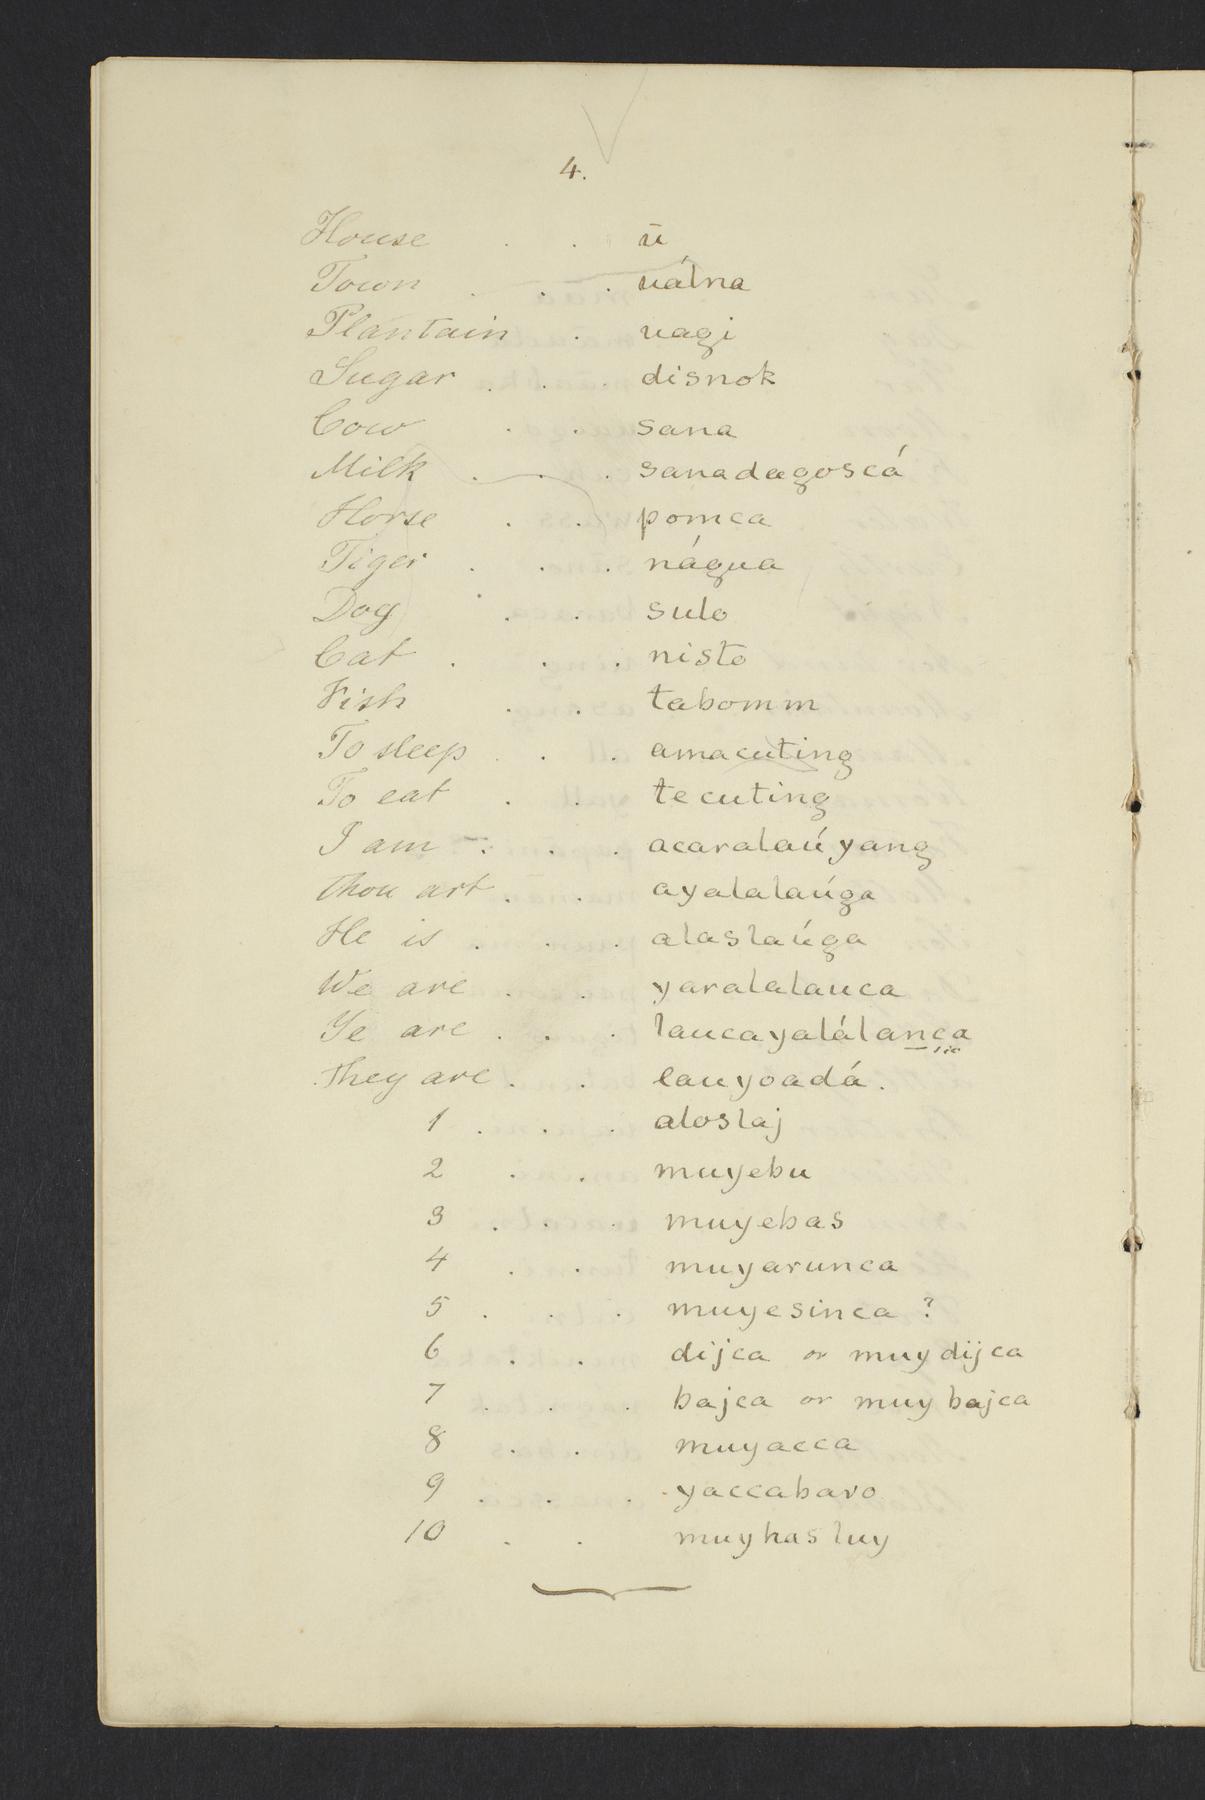 4.
House . . ū
Town . . . uálna
Plantain . uagi
Sugar . . . disnok
Cow . . sana
Milk . . . sanadagoscá
Horse . . pomca
Tiger . . . nágua
Dog . . sulo
Cat . . . nisto
Fish . . tabomm
To sleep . . . amacuting
To eat . . tecuting
I am . . . acaralaúyang
Thou art . . ayalalaúga
He is . . . alaslaúga
We are . . yaralalauca
Ye are . . . laucayalálanca
sic
They are . . lauyoadá.
1 . . . aloslaj
2 . . muyebu
3 . . . muyebas
4 . . muyarunca
5 . . . muyesinca ?
6 . . dijca or muydijca
7 . . . bajca or muybajca
8 . . muyacca
9 . . . yaccabaro
10 . . muyhasluy